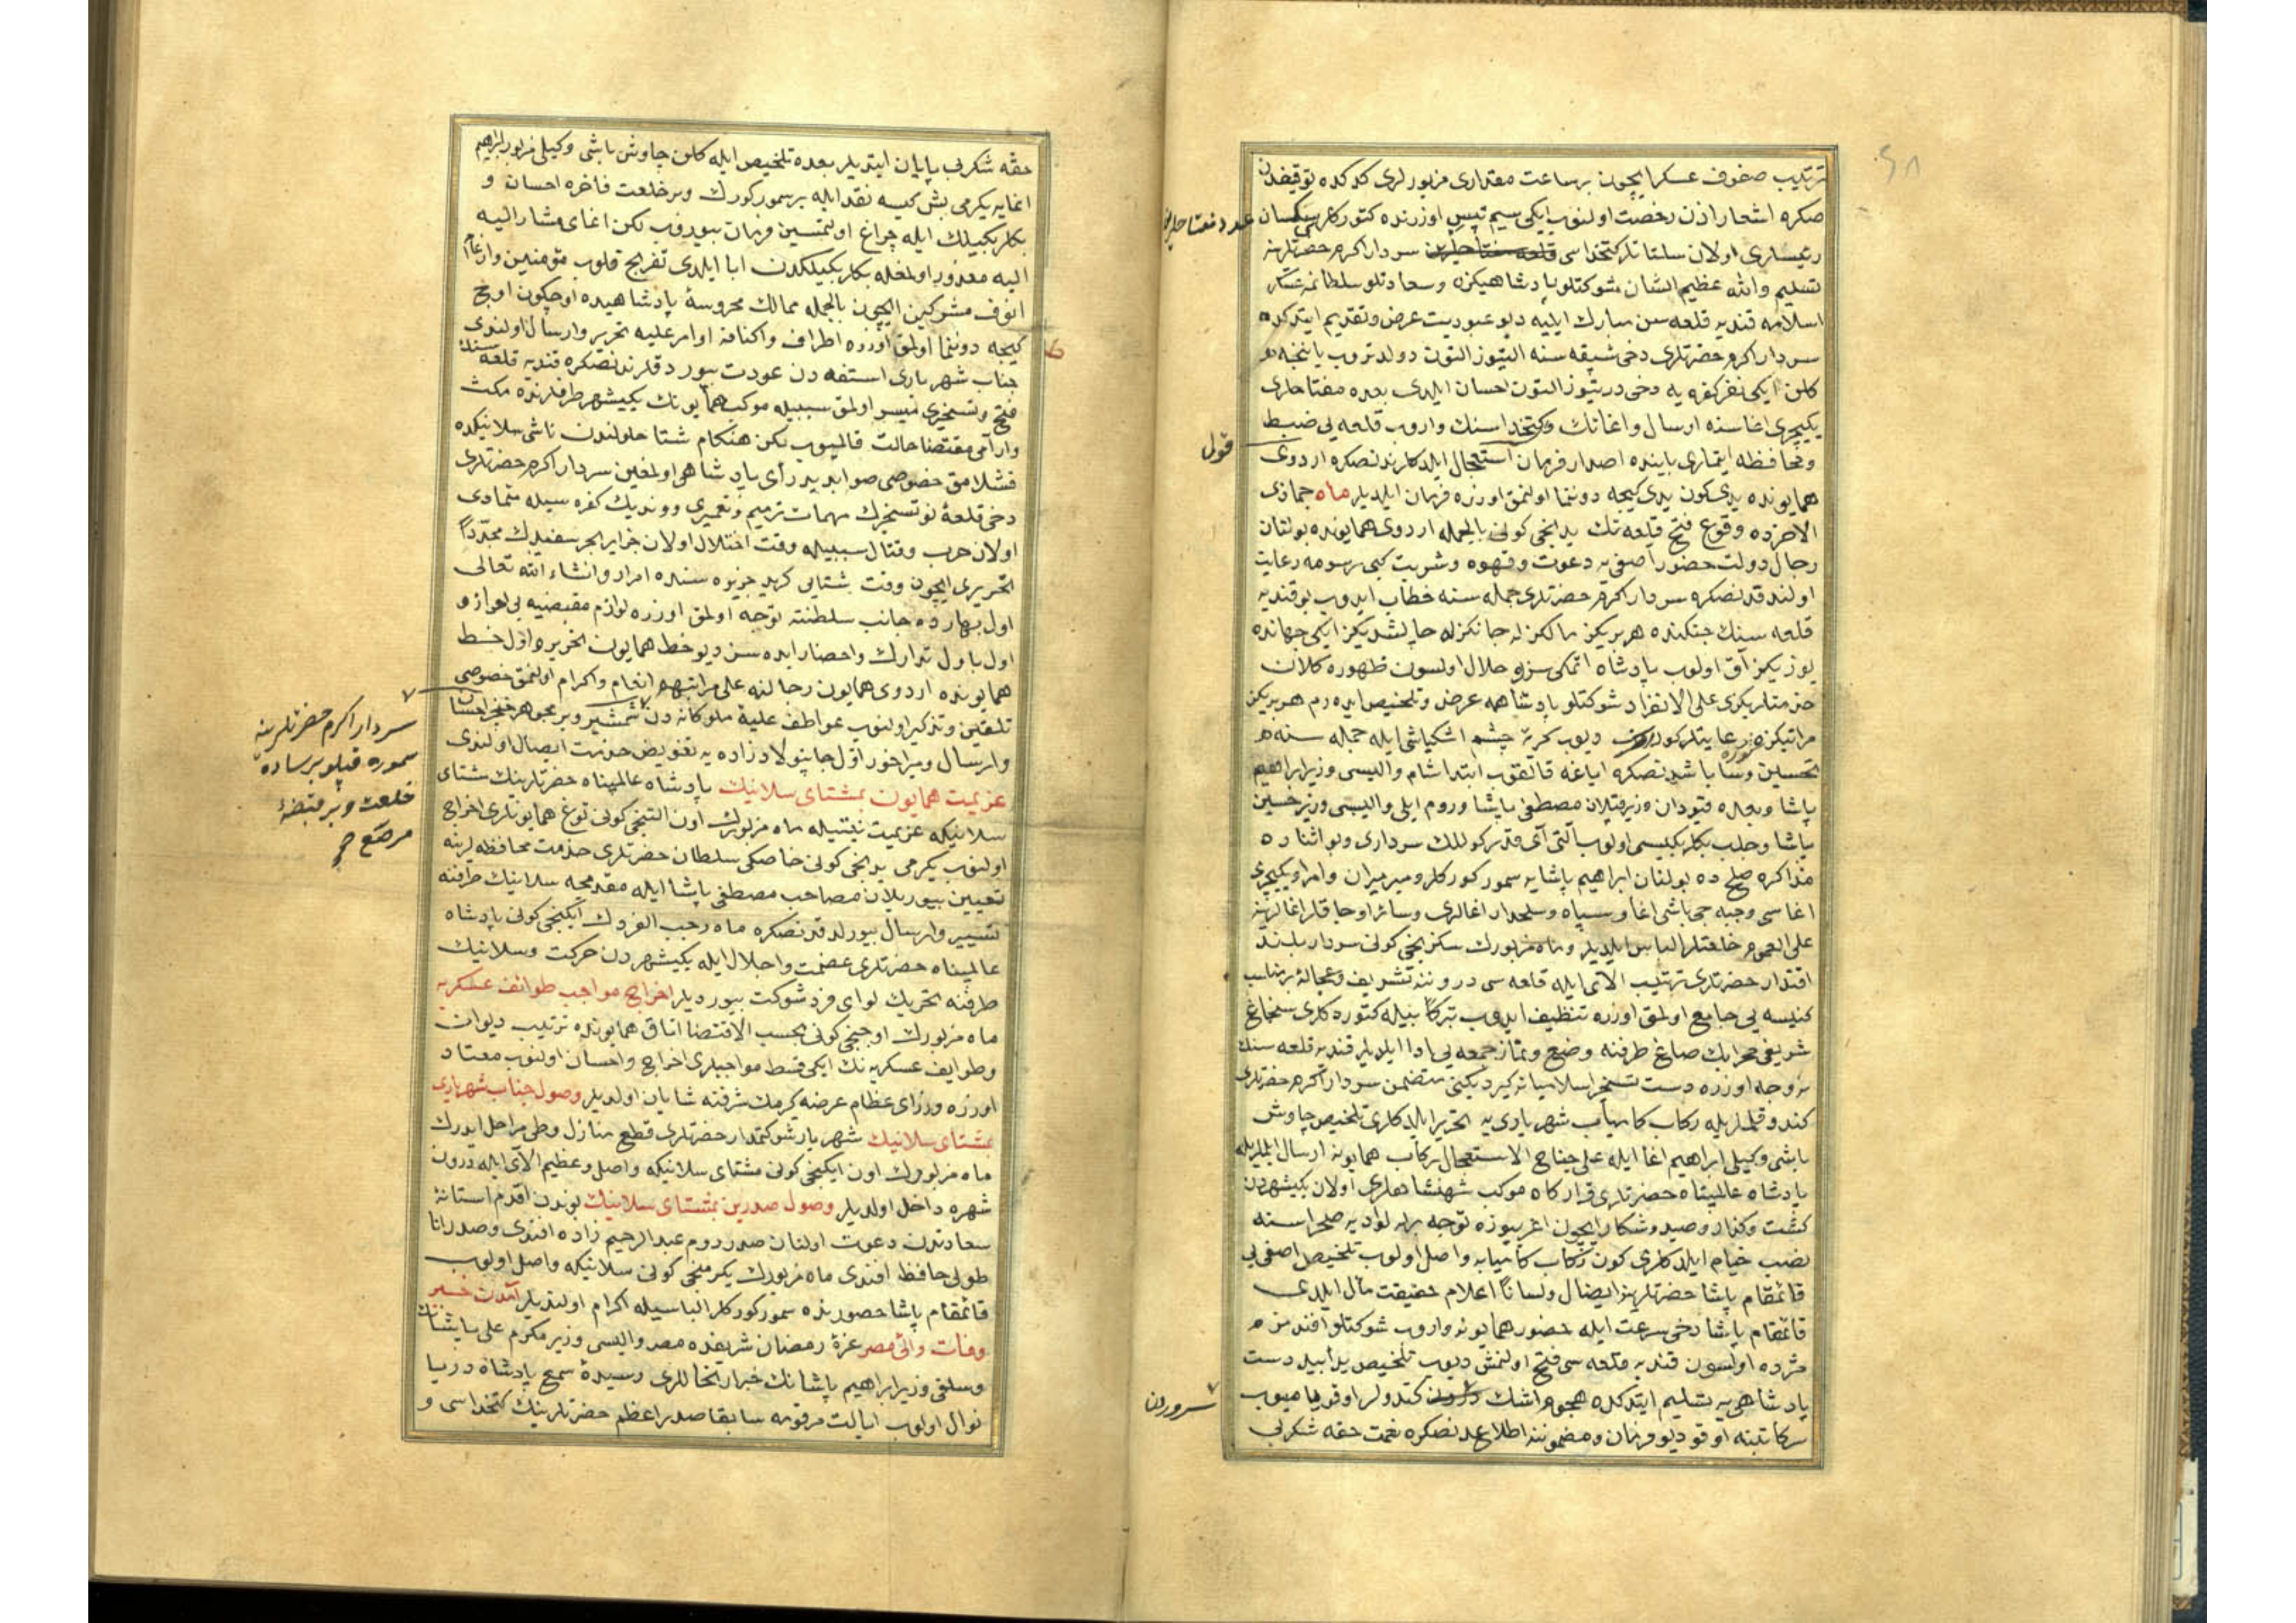 ترتيب صفوف عسكر ايچون بر ساعت مقداری مزبورلری كدكده توقيفدن
صكره اشعار اذن رخصت اولنوب ايكی سيم تپسی اوزرنده كتوركلری سكسان
عدد مفتاحلرین
رئيسلری اولان سلتاتلر كتخداسی قلعه مفتاحلرین سردار اكرم حضرتلرينه
تسليم والله عظيم الشان شوكتلو پادشاهیكزه وسعادتلو سلطانمه عسكر
اسلامه قنديه قلعه سن مبارك ايليه ديو عبوديت عرض وتقديم ايتدكده
سردار اكرم حضرتلری دخی شبقه سنه التيوز التون دولدروب ياننجه
كلن ايكی نفر كفره يه دخی دريتوز التون احسان ايلدی بعده مفتاحلری
يكيچری اغاسنه ارسال واغانك وكتخداسنك واروب قلعه يی ضبط
قول
ومحافظه ايتملری بابنده اصدار فرمان استعجال ايلدكلرندنصكره اردوی
همايونده يدی كون يدی كيجه دوننما اولنمق اوزره فرمان ايلديلر ماه جماذی
الاخرده وقوع فتح قلعه نك يدنجی كونی بالجمله اردوی همايونده بولنان
رجال دولت حضور آصفی يه دعوت وقهوه وشربت كبی رسومه رعايت
اولندقدنصكره سردار اكرم حضرتلری جمله سنه خطاب ايدوب بو قنديه
قلعه سنك جنكنده هر بريكز مالكزله جانكزله چالشديكز ايكی جهانده
يوزيكز آق اولوب پادشاه اتمكی سزه حلال اولسون ظهوره كلان
خدمتلريكزی علی الانفراد شوكتلو پادشاهمه عرض وتلخيص ايده رم هر بريكز
مراتبكزه رعايتلر كورر ديوب كريۀ چشم اشكپاشی ايله جمله سنه
تحسين باشدنصكره اياغه قالقوب ابتدا شام واليسی وزير ابراهيم
پاشا وبعده قپودان وزير قپلان مصطفی پاشا وروم ايلی واليسی وزير حسين
پاشا وحلب بكلربكيسی اولوب آلتی آی قدر كوللك سرداری وبو اثناده
مذاكرۀ صلحده بولنان ابراهيم پاشايه سمور كوركلر وميرميران وامرا ويكيچری
اغاسی وجبه جی باشی اغا وسپاه وسلحدار اغالری وسائر اوجاقلر اغالرينه
علی العموم خلعتلر الباس ايلديلر وماه مزبورك سكزنجی كونی سردار بلند
اقتدار حضرتلری ترتيب آلای ايله قلعه سی دروننه تشريف وعجالۀ برمناسب
كنيسه يی جامع اولمق اوزره تنظيف ايدوب تبركا بيله كتوردكلری سنجاغ
شريفی محرابك صاغ طرفنه وضع ونماز جمعه يی ادا ايلديلر قنديه قلعه سنك
نه وجه اوزره دست تسخير اسلاميانه كيرديكنی متضمن سردار اكرم حضرتلری
كندو قلملريله ركاب كامياب شهرياری يه تحرير ايلدكلری تلخيص چاوش
باشی وكيلی ابراهيم اغا ايله علی جناح الاستعجال ركاب همايونه ارسال ايلديلر
پادشاه عالمپناه حضرتلری قراركاه موكب شهنشاهلری اولان يكيشهردن
كشت وكذار وصيد وشكار ايچون اغريبوزه توجه برله لواديه صحراسنه
نصب خيام ايلدكلری كون ركاب كاميابه واصل اولوب تلخيص آصفی يی
قائمقام پاشا حضرتلرينه ايصال ولسانا اعلام حقيقت مآل ايلدی
قائمقام پاشا دخی سرعت ايله حضور همايونه واروب شوكتلو افندمزه
مژده اولسون قنديه قلعه سی فتح اولنمش ديوب تلخيصی دست
پادشاهی يه تسليم ايتدكده هجوم اشك درون كندولر اوقويه ميوب
سروردن
سركاتبنه اوقو ديو فرمان ومضموننه اطلاعدنصكره نعمت حقه شكر بی
حقه شكر بی پايان ايتديلر بعده تلخيص ايله كلن چاوش باشی وكيلی مزبور ابراهيم
اغايه يكرمی بش كيسه نقد ايله بر سمور كورك وبر خلعت فاخره احسان و
بكلربكيلك ايله چراغ اولنمسين فرمان بيوروب لكن اغای مشار اليه
اليه معذور اولمغله بكلربكيلكدن ابا ايلدی تفريح قلوب مؤمنين وارغام
انوف مشركين ايچون بالجمله ممالك محروسۀ پادشاهيده اوچ كون اوچ
كيجه دوننما اولمق اوزره اطراف واكنافه اوامر عليه تحرير وارسال اولندی
جناب شهرياری استفه دن عودت بيوردقلرندنصكره قنديه قلعه سنك
فتح وتسخيری ميسر اولمق سببيله موكب همايونك يكيشهر طرفلرنده مكث
وآرامی مقتضا حالت قالميوب لكن هنكام شتا حلولندن ناشی سلانيكده
قشلامق خصوصی صوابديد رأی پادشاهی اولمغين سردار اكرم حضرتلری
دخی قلعۀ نوتسخيرك مهمات ترميم وتعميری وونديك كفره سيله متمادی
اولان حرب وقتال سببيله وقت اختلال اولان جزاير بحر سفيدك مجددا
تحريری ايچون وقت شتايی كريد جزيره سنده امرار وانشاء الله تعالی
اول بهارده جانب سلطنته توجه اولمق اوزره لوازم مقتضيه يی
اول باول تدارك واحضار ايده سن ديو خط همايون تحرير واول خط
همايونده اردوی همايون رجالنه علی مراتبهم انعام واكرام اولنمق خصوصی
تلقين وتذكير اولنوب عواطف عليۀ ملوكانه دن شمشير وبر مجوهر خنجر احسان
سردار اكرم حضرتلرينه
سموره قپلو بر ساده
خلعت وبر قبضه
مرصع
وارسال وميراخور اول جانبولادزاده يه تفويض خدمت ايصال اولندی
عزيمت همايون بمشتای سلانيك پادشاه عالمپناه حضرتلرينك مشتای
سلانيكه عزيمت نيتيله ماه مزبورك اون التنجی كونی توغ همايونلری اخراج
اولنوب يكرمی يدنجی كونی خاصكی سلطان حضرتلری خدمت محافظه لرينه
تعيين بيوريلان مصاحب مصطفی پاشا ايله مقدمجه سلانيك طرفنه
تسيير وارسال بيورلدقدنصكره ماه رجب الفردك ايكنجی كونی پادشاه
عالمپناه حضرتلری عظمت واجلال ايله يكيشهردن حركت وسلانيك
طرفنه تحريك لوای فر وشوكت بيورديلر اخراج مواجب طوائف عسكريه
ماه مزبورك اوچنجی كونی بحسب الاقتضا اتاق همايونده ترتيب ديوان
وطوايف عسكريه نك ايكی قسط مواجبلری اخراج واحسان اولنوب معتاد
اوزره وزرای عظام عرضه كيرمك شرفنه شايان اولديلر وصول جناب شهرياری
بمشتای سلانيك شهريار شوكتمدار حضرتلری قطع منازل وطی مراحل ايدرك
ماه مزبورك اون ايكنجی كونی مشتای سلانيكه واصل وعظيم آلای ايله درون
شهره داخل اولديلر وصول صدرين بمشتای سلانيك بوندن اقدم آستانۀ
سعادتدن دعوت اولنان صدر روم عبد الرحيم زاده افندی وصدر انا
طولی حافظ افندی ماه مزبورك يكرمنجی كونی سلانيكه واصل اولوب
قائمقام پاشا حضورنده سمور كوركلر الباسيله اكرام اولنديلر آمدن خبر
وفات والئ مصر غرۀ رمضان شريفده مصر واليسی وزير مكرم علی پاشانك
وسلفی وزير ابراهيم پاشانك خبر ارتحاللری رسيدۀ سمع پادشاه دريا
نوال اولوب ايالت مرقومه سابقا صدر اعظم حضرتلرينك كتخداسی و